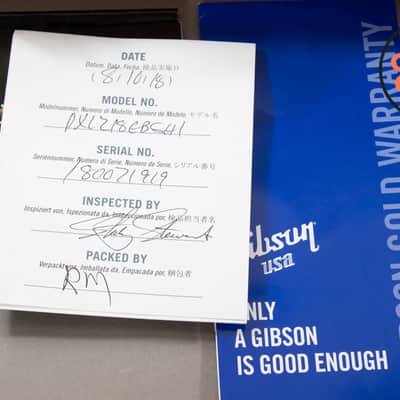 DATE
Datum, Data, Fecha, 検品実施日
MODEL NO.
Modelnummer, Numero di Modello, Número de Modelo, モデル名
SERIAL NO.
Seriennummer, Numero di Serie, Número de Serie, シリアル番号
180071919
INSPECTED BY
Inspiziert von, Ispezionata da, Inspeccionada por, 検品担当者名
Stewart
PACKED BY
Verpackt von, Imballata da, Empacada por, 梱包者
RM
Gibson
USA
ONLY
A GIBSON
IS GOOD ENOUGH
GOLD WARRANTY